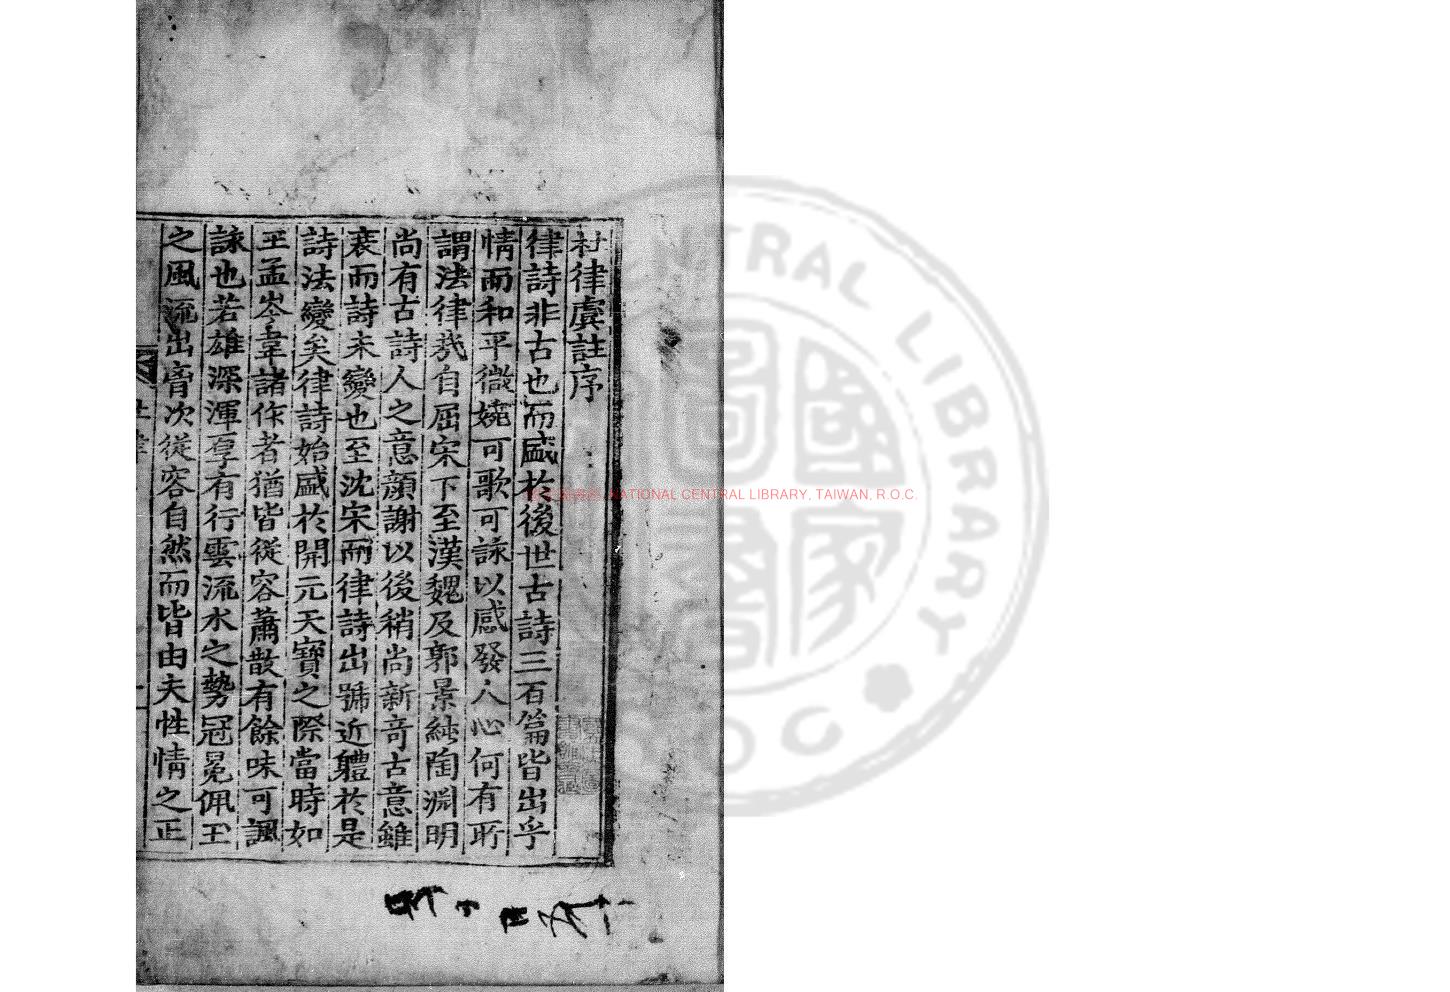 杜律虞註序
律詩非古也而盛於後世古詩三百篇皆出乎
情而和平微婉可歌可詠以感發人心何有所
謂法律哉自屈宋下至漢魏及郭景純陶淵明
尚有古詩人之意顏謝以後稍尚新竒古意雖
衰而詩未變也至沈宋而律詩出號近體於是
詩法變矣律詩始盛於開元天寶之際當時如
王孟岑韋諸作者猶皆從容蕭散有餘味可諷
詠也若雄深渾厚有行雲流水之勢冠冕佩玉
之風流出胷次從容自然而皆由夫性情之正
NATIONAL CENTRAL LIBRARY, TAIWAN, R.O.C.